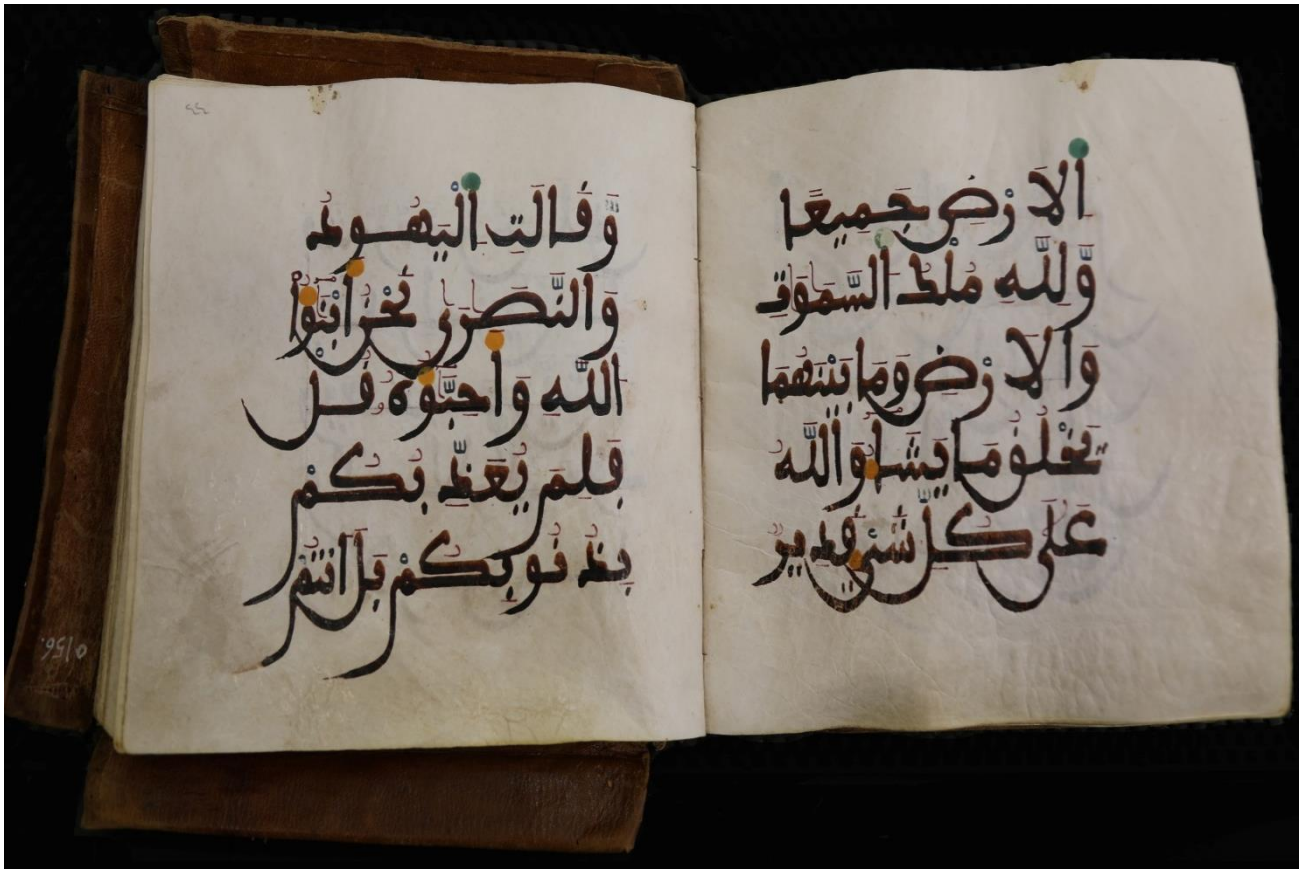 اَلَارْضِ جَمِيعًا
وَّلِلَّهِ مُلْكُ السَّمَٰوَٰتِ
وَالَارْضِ وَمَا بَيْنَهُمَا
يَخْلُقُ مَا يَشَآءُ وَاللَّهُ
عَلَىٰ كُلِّ شَيْءٍ قَدِيرٌ
وَّقَالَتِ الْيَهُودُ
وَالنَّصَٰرَىٰ نَحْنُ أَبْنَٰٓؤُا
اللَّهِ وَأَحِبَّٰٓؤُهُ قُلْ
فَلِمَ يُعَذِّبُكُمْ
بِذُنُوبِكُمْ بَلَ انتُمْ
0/56.